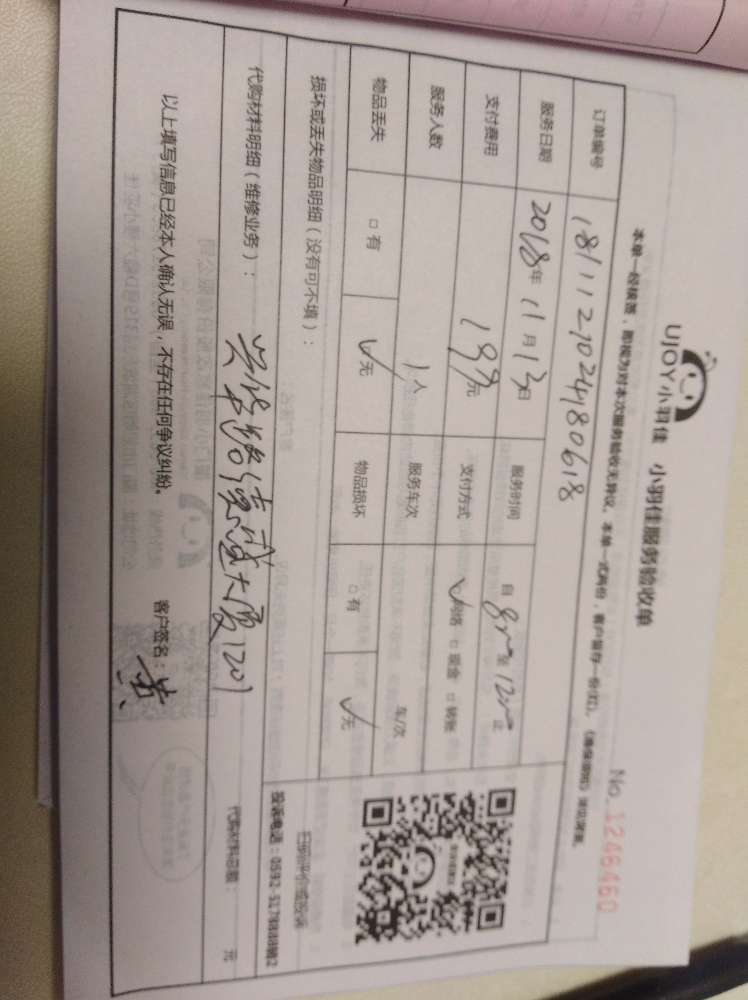 UJOY小羽佳 小羽佳服务验收单
No. 1246460
本单一经核签,即视为对本次服务验收无异议。本单一式两份,客户留存一份(红),
订单编号 1811127024180618
服务日期 2018年11月13日 服务时间 自 8 至 12 止
支付费用 199元 支付方式 ☑网络 □现金 □转账
服务人数 1人 服务车次 车/次
物品丢失 □有 ☑无 物品损坏 □有 ☑无
扫码评价或投诉
投诉电话:0592-5179888转2
损坏或丢失物品明细(没有可不填):
代购材料明细(维修业务): 代购材料总额: 元
德盛大厦1201
以上填写信息已经本人确认无误,不存在任何争议纠纷。 客户签名:黄